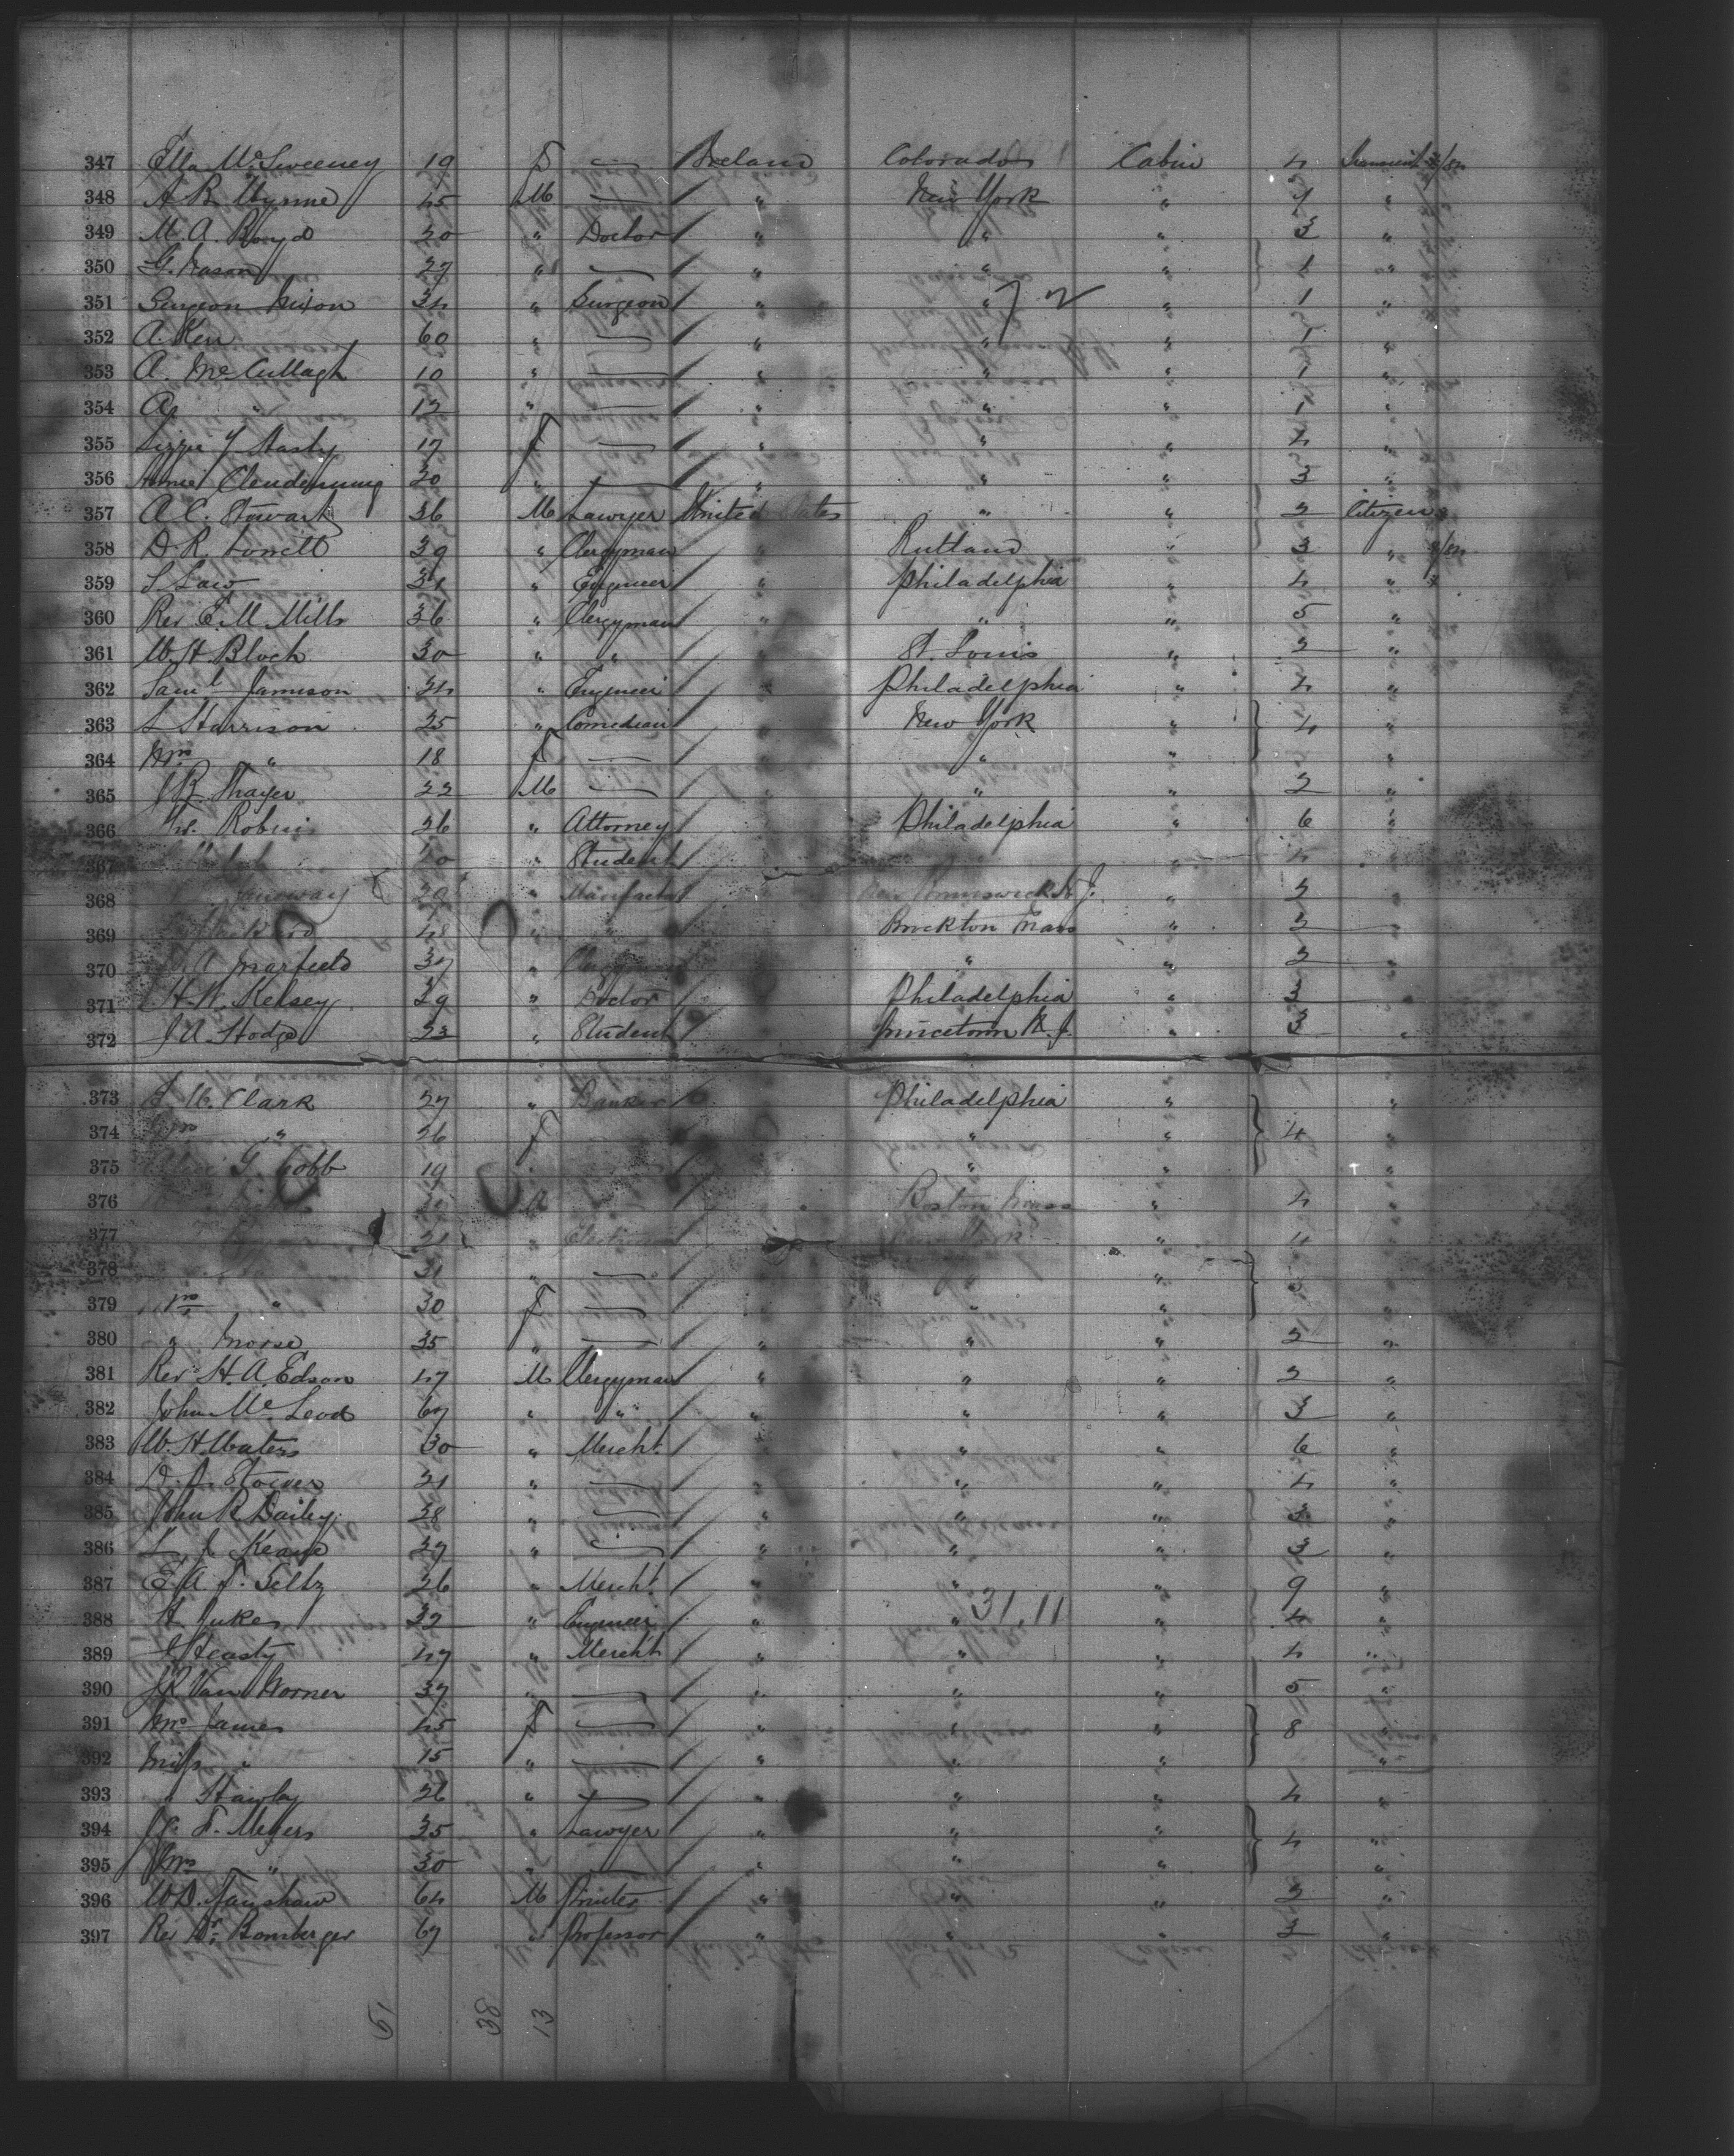 347 Ella McSweeney 19 F — Ireland Colorado Cabin 4
348 A B Wynne 45 M — " New York " 1 "
349 M. A. Boyd 20 " Doctor " " " 3 "
350 G. Nason 27 " — " " " 1 "
351 Surgeon Nixon 34 " Surgeon " " " 1 "
72
352 A. Kerr 60 " — " " " 1 "
353 A. McCullagh 10 " — " " " 1 "
354 A. " 12 " — " " " 1 "
355 Lizzie 17 F — " " " 4 "
356 Annie Clendenning 20 " — " " " 3 "
357 A. C. Stewart 36 M Lawyer United States " " 2 Citizen
358 D. R. 39 " Clergyman " Rutland " 3 "
359 S Law 31 " Engineer " Philadelphia " 4 "
360 Rev E. M. Mills 36 " Clergyman " " " 5 "
361 W. H. Bloch 30 " " St. Louis " 2 "
362 Saml Jamison 24 " Engineer Philadelphia " 4 "
363 L Harrison 25 " Comedian New York " 4 "
364 Mrs " 18 F — " " "
365 J B. Thayer 22 M — " " 2 "
366 Robins 26 " Attorney Philadelphia " 6 "
367 20 " Student " 4
368 29 " Brunswick N. J. " 2
369 48 " " Brockton Mass " 2
370 A Marfield 37 " Clergyman " " 2
371 H. W. Kelsey 29 " Doctor Philadelphia " 3
372 J A Hodge 23 " Student Princetown N. J. " 3 "
373 Clark 27 " Banker Philadelphia " "
374 Mrs " 26 F " " 4 "
375 G. Cobb 19 " " "
376 Boston Mass " 4 "
377 " New York " 4
378 31 " — " "
379 Mrs " 30 F — " " "
380 " Morse 35 " — " " " 2 "
381 Rev H. A. Edson 47 M Clergyman " " " 2 "
382 John McLeod 67 " " " " " 3 "
383 W. H. Waters 30 " Mercht. " " " 6 "
384 21 " — " " " 4 "
385 John R. Dailey 38 " — " " 3 "
386 L J Keane 27 " — " " " 3 "
387 E. A. T. Seltz 26 " Mercht. " " " 9 "
31.11
388 H Jukes 32 " Engineer " " " 4 "
389 Heasty 47 " Mercht " " " 4 "
390 J R Van Wormer 37 " — " " " 5 "
391 Mrs James 45 F — " " " 8 "
392 Miss " 15 " — " " " "
393 " Hawley 26 " — " " " 4 "
394 F. Meyers 35 " Lawyer " " " 4 "
395 Mrs " 30 " — " " " "
396 W. D. Fanshaw 64 M Printer " " " 2 "
397 Rev Dr. Bomberger 67 " Professor " " " 3 "
61 38 13